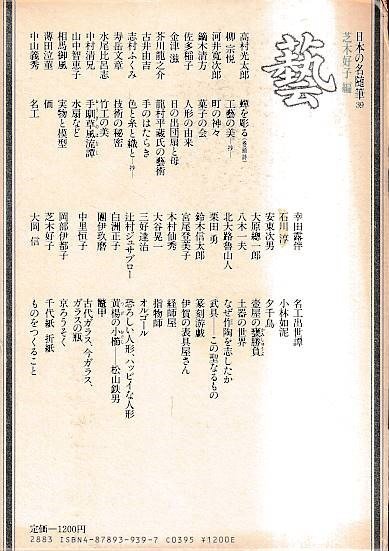 日本の名随筆 39
芝木好子 編
藝
高村光太郎 蟬を彫る（巻頭詩）
柳 宗悦 工藝の美―抄―
河井寛次郎 町の神々
鏑木清方 菓子の会
佐多稲子 人形の由来
金津 滋 日の出団扇と母
芥川龍之介 龍村平蔵氏の藝術
古井由吉 手のはたらき
志村ふくみ 色と糸と織と―抄―
寿岳文章 技術の秘密
水尾比呂志 竹工の美
中村清兄 手馴草風流譚
山中智恵子 水扇など
相馬御風 実物と模型
薄田泣菫 価
中山義秀 名工
幸田露伴 名工出世譚
石川 淳 小林如泥
安東次男 夕千鳥
大原總一郎 壺屋の甕勝負
八木一夫 土器の世界
北大路魯山人 なぜ作陶を志したか
栗田 勇 武具――この聖なるもの
鈴木信太郎 篆刻游戯
宮尾登美子 伊賀の表具屋さん
木村仙秀 経師屋
大谷晃一 指物師
三好達治 オルゴール
辻村ジュサブロー 恐ろしい人形、ハッピイな人形
白洲正子 黄楊の小櫛――松山鉄男
團伊玖磨 鼈甲
中里恒子 古代ガラス、今ガラス、
ガラスの瓶
岡部伊都子 京ろうそく
芝木好子 千代紙 折紙
大岡 信 ものをつくること
定価―1200円
2883 ISBN4-87893-939-7 C0395 ¥1200E